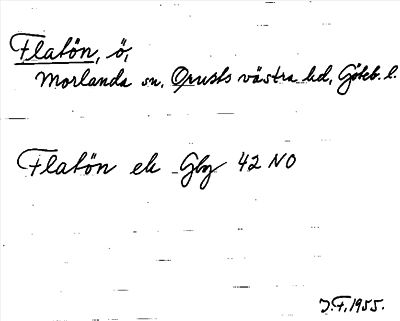 Flatön, ö,
Morlanda sn. Orusts västra hd, Göteb. l.
Flatön ek Gbg 42 NO
J.F. 1955.